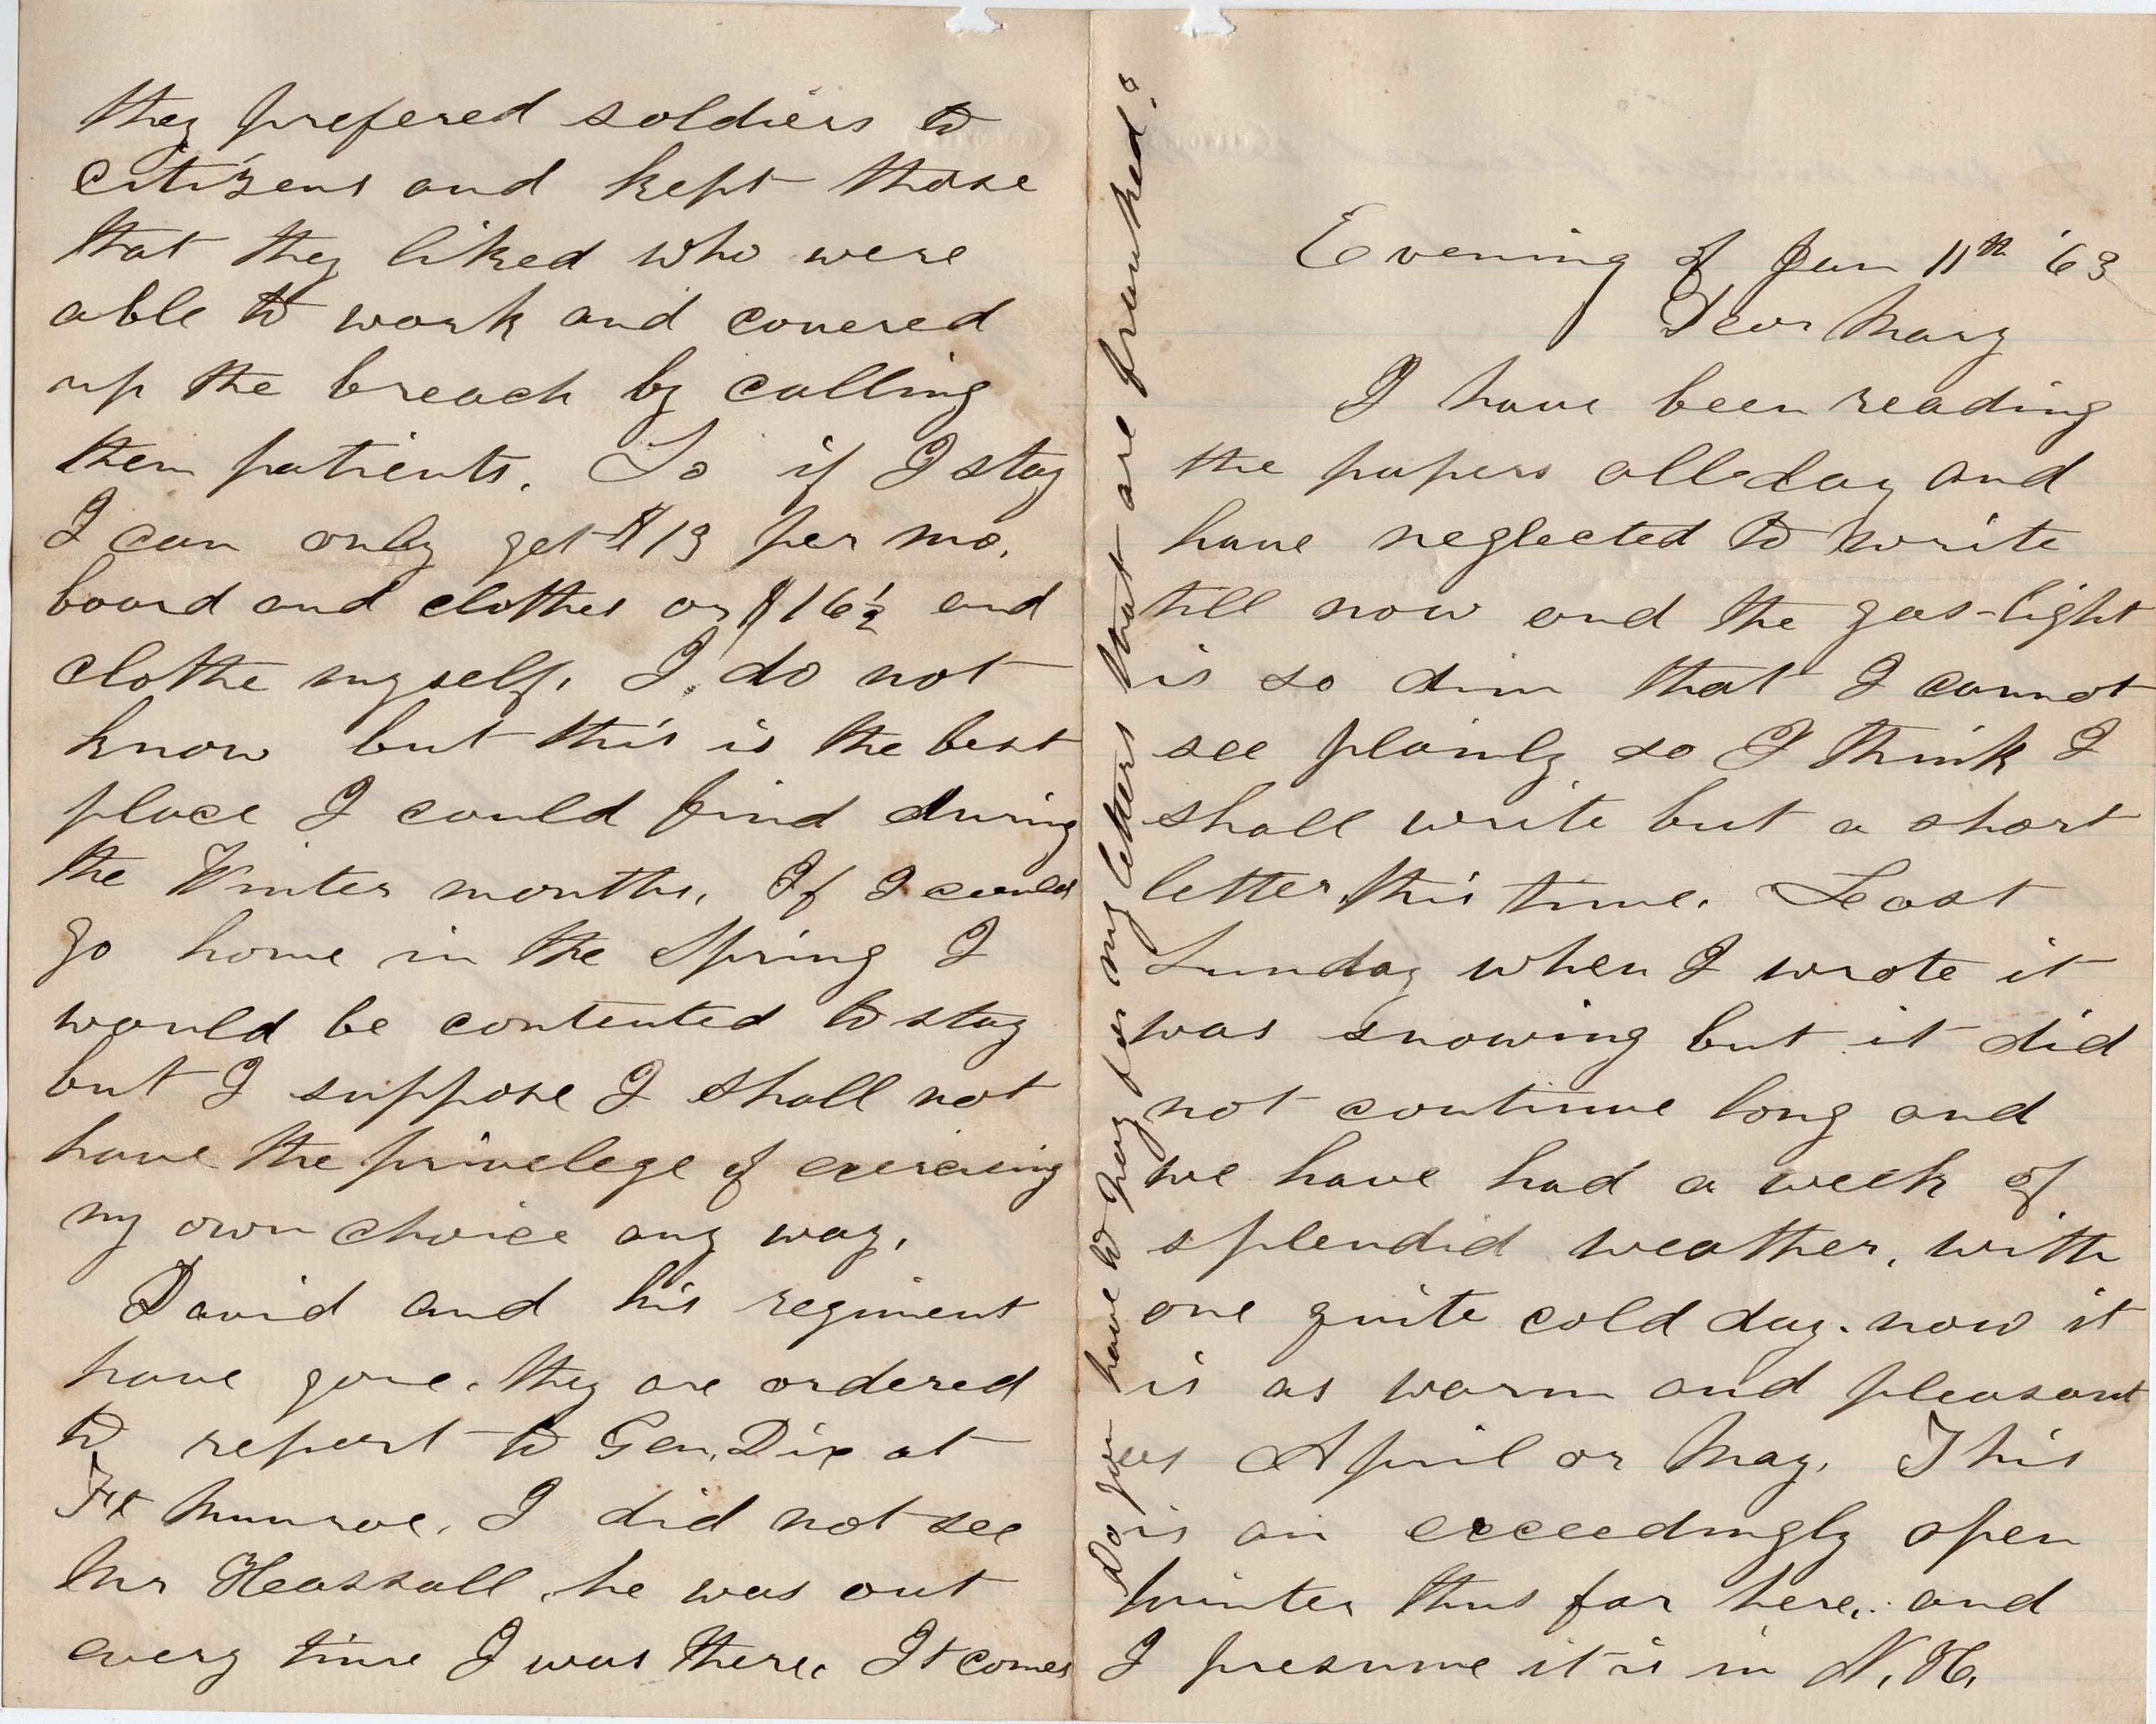 they prefered soldiers to
citizens and kept those
that they liked who were
able to work and covered
up the breach by calling
them patients. So if I stay
I can only get $13 per mo.
board and clothes or $16½ and
clothe myself. I do not
know but this is the best
place I could find during
the Winter months. If I could
go home in the Spring I
would be contented to stay
but I suppose I shall not
have the privelege of exercising
my own choice any way.
David and his regiment
have gone. they are ordered
to report to Gen. Dix at
Ft Munroe. I did not see
Mr Heassall. he was out
every time I was there. It comes
Do you have to pay for my letters that are franked?
Evening of Jan 11th '63
Dear Mary
I have been reading
the papers all day and
have neglected to write
till now and the gas-light
is so dim that I cannot
see plainly so I think I
shall write but a short
letter this time. Last
Sunday when I wrote it
was snowing but it did
not continue long and
we have had a week of
splendid weather, with
one quite cold day. now it
is as warm and pleasant
as April or May. This
is an exceedingly open
winter thus far here, and
I presume it is in N. H.